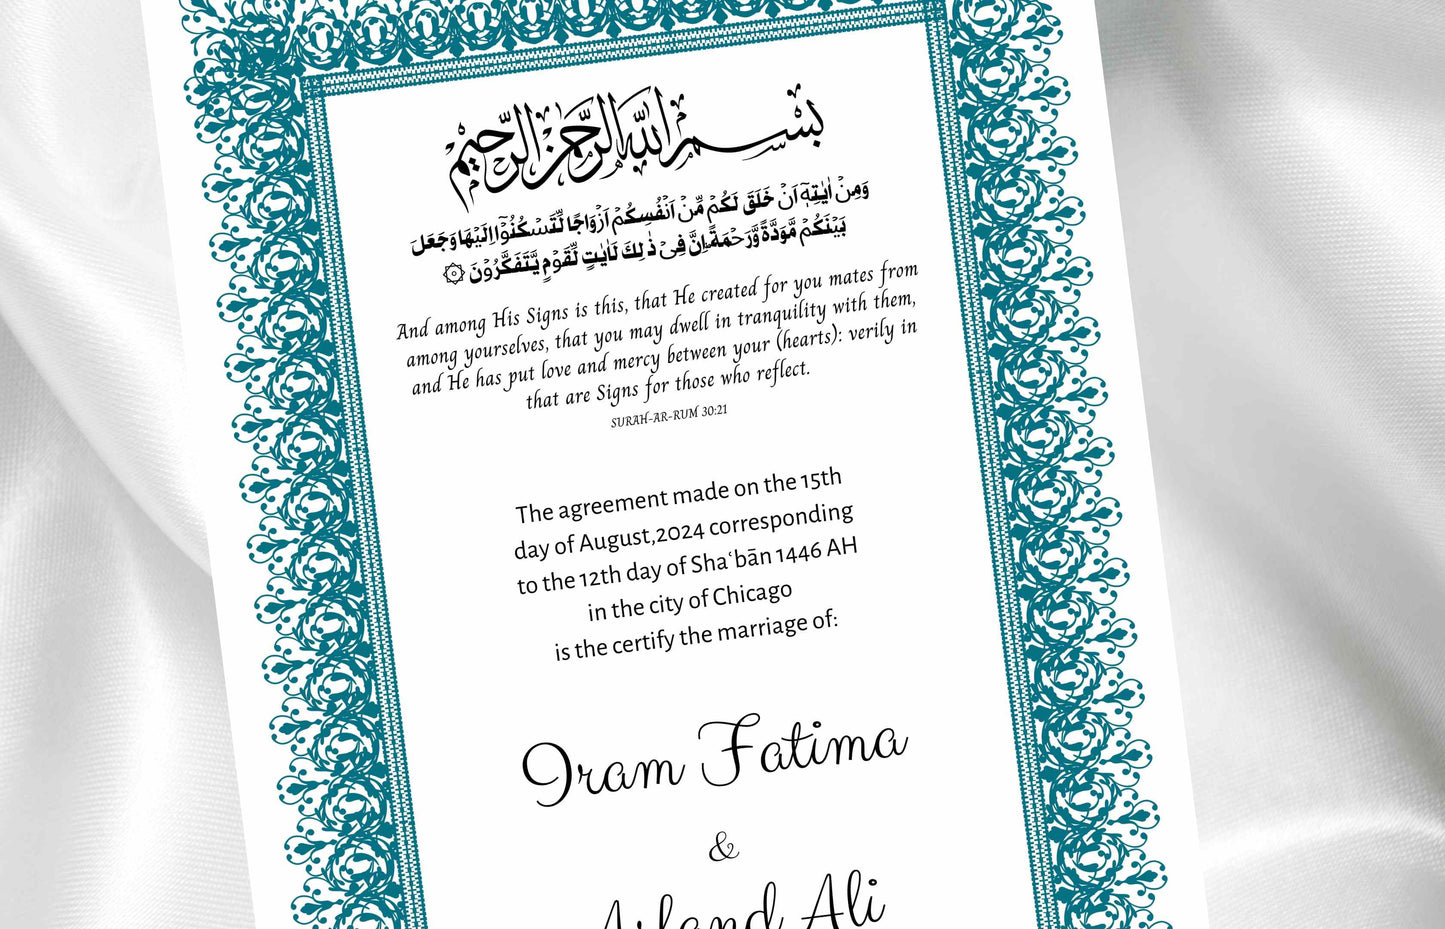 بِسْمِ اللهِ الرَّحْمٰنِ الرَّحِيْمِ
وَمِنْ اٰيٰتِهٖٓ اَنْ خَلَقَ لَكُمْ مِّنْ اَنْفُسِكُمْ اَزْوَاجًا لِّتَسْكُنُوْٓا اِلَيْهَا وَجَعَلَ
بَيْنَكُمْ مَّوَدَّةً وَّرَحْمَةً ؕ اِنَّ فِىْ ذٰ لِكَ لَاٰيٰتٍ لِّقَوْمٍ يَّتَفَكَّرُوْنَ ۞
And among His Signs is this, that He created for you mates from
among yourselves, that you may dwell in tranquility with them,
and He has put love and mercy between your (hearts): verily in
that are Signs for those who reflect.
SURAH-AR-RUM 30:21
The agreement made on the 15th
day of August,2024 corresponding
to the 12th day of Shaʿbān 1446 AH
in the city of Chicago
is the certify the marriage of:
Iram Fatima
&
Ali